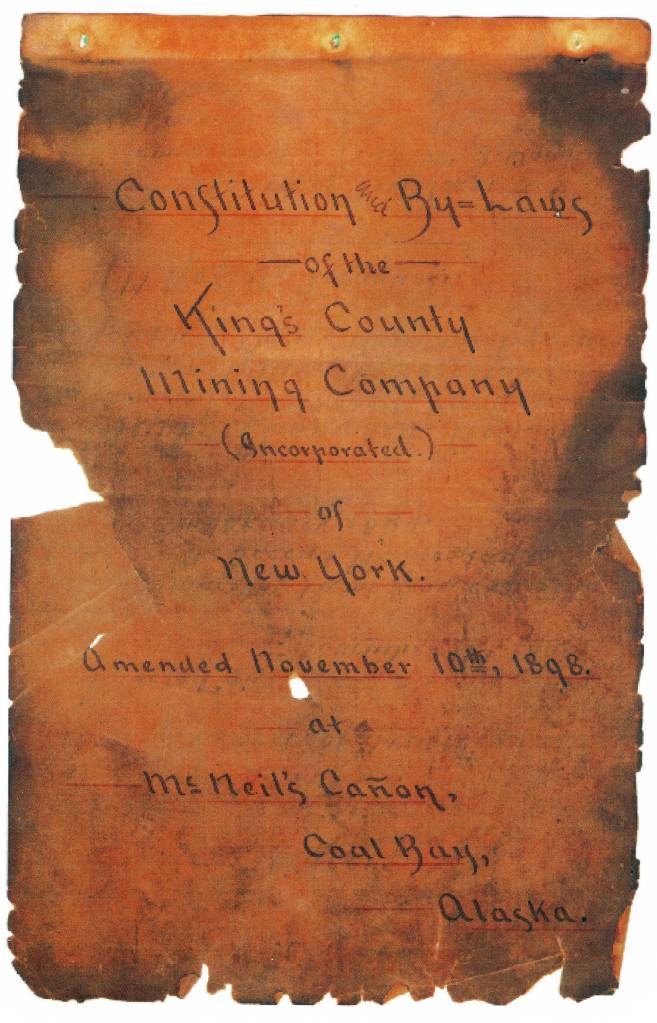 Constitution and By=Laws
of the
King's County
Mining Company
(Incorporated.)
of
New York.
Amended November 10th, 1898.
at
McNeil's Cañon,
Coal Bay,
Alaska.